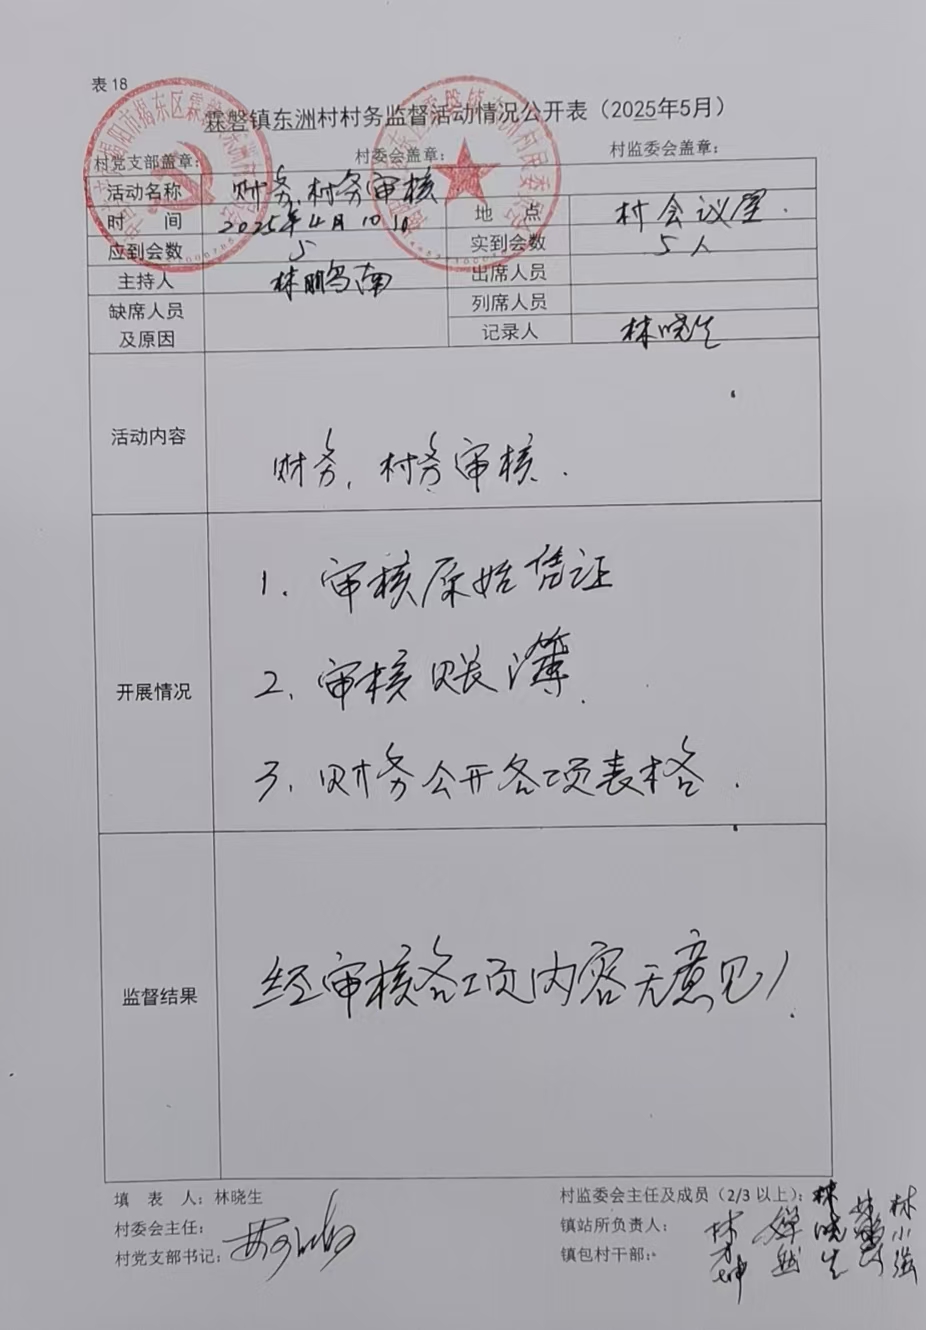 表 18
霖磐镇东洲村村务监督活动情况公开表（2025年5月）
村党支部盖章： 村委会盖章： 村监委会盖章：
活动名称 财务、村务审核
时 间 2025年4月10日 地 点 村会议室.
应到会数 5 实到会数 5人
主持人 林鹏南 出席人员
缺席人员及原因 列席人员
记录人 林晓生
活动内容 财务, 村务审核.
开展情况
1. 审核原始凭证
2. 审核账簿.
3. 财务公开各项表格.
监督结果 经审核各项内容无意见!
填 表 人：林晓生 村监委会主任及成员（2/3 以上）：林晓生 林小强
村委会主任： 镇站所负责人：
村党支部书记： 镇包村干部：